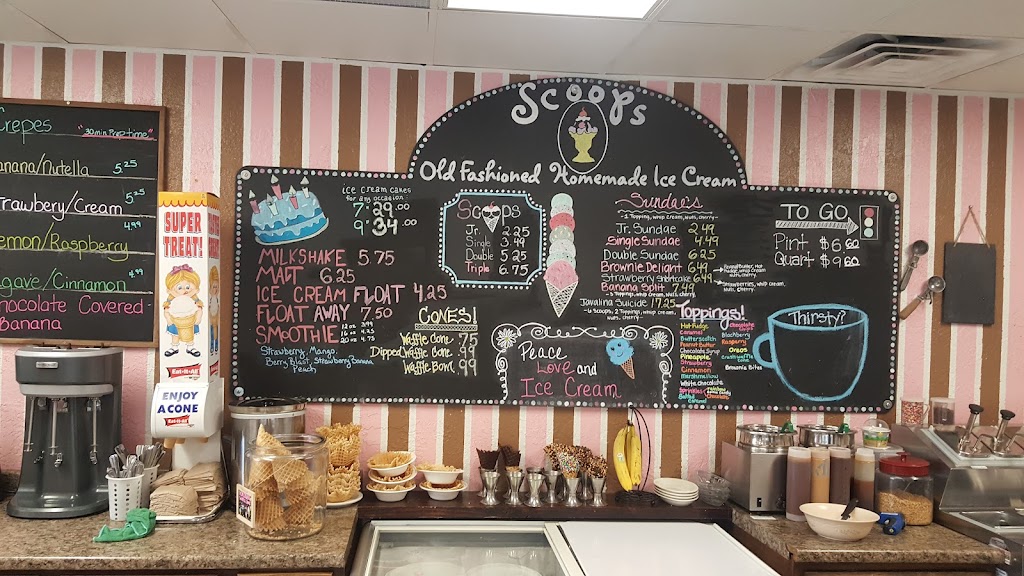 Crepes
"30 min Prep time"
anana/Nutella 5.25
trawbery/Cream 5.25
emon/Raspberry 4.99
gave/Cinnamon 4.99
hocolate Covered
Banana
SUPER
TREAT!
Eat-It-All
ENJOY
A CONE
Eat-It-All
Scoops
Old Fashioned Homemade Ice Cream
ice cream cakes
for any occasion:
7" 29.00
9" 34.00
MILKSHAKE 5.75
MALT 6.25
ICE CREAM FLOAT 4.25
FLOAT AWAY 7.50
SMOOTHIE 12oz 3.99
20oz 4.75
Strawberry, Mango,
Berry Blast, Strawberry Banana
Peach
CONES!
Waffle Cone .75
Dipped Waffle Cone .99
Waffle Bowl .99
Scoops
Jr. 2.25
Single 3.49
Double 5.25
Triple 6.75
Sundae's
~1 Topping, whip cream, nuts, cherry~
Jr. Sundae 2.49
Single Sundae 4.49
Double Sundae 6.25
Brownie Delight 6.49
Strawberry Shortcake 6.49
Banana Split 7.49
~3 Toppings, whip cream, nuts, cherry~
Javalina Suicide 17.25
~6 Scoops, 2 Toppings, whip cream,
nuts, cherry~
Peanut Butter, Hot
Fudge, whip cream
nuts, cherry
Strawberries, whip cream,
nuts, cherry
TO GO
Pint $6.60
Quart $9.60
Peace
Love and
Ice Cream
Toppings!
Hot Fudge
Caramel
Butterscotch
Peanut Butter
Chocolate Syrup
Pineapple
Strawberry
Cinnamon
Marshmallow
White chocolate
Sprinkles
Blackberry
Raspberry
Oreos
Brownie Bites
Thirsty?